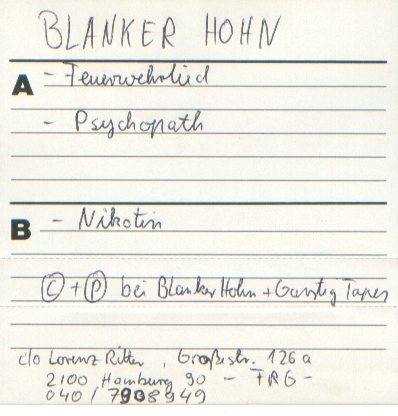 BLANKER HOHN
A - Feuerwehrlied
- Psychopath
B - Nikotin
Ⓒ + Ⓟ bei Blanker Hohn + Garstig Tapes
c/o Lorenz Ritter, Großestr. 126a
2100 Hamburg 90 - FRG -
040 / 7908949